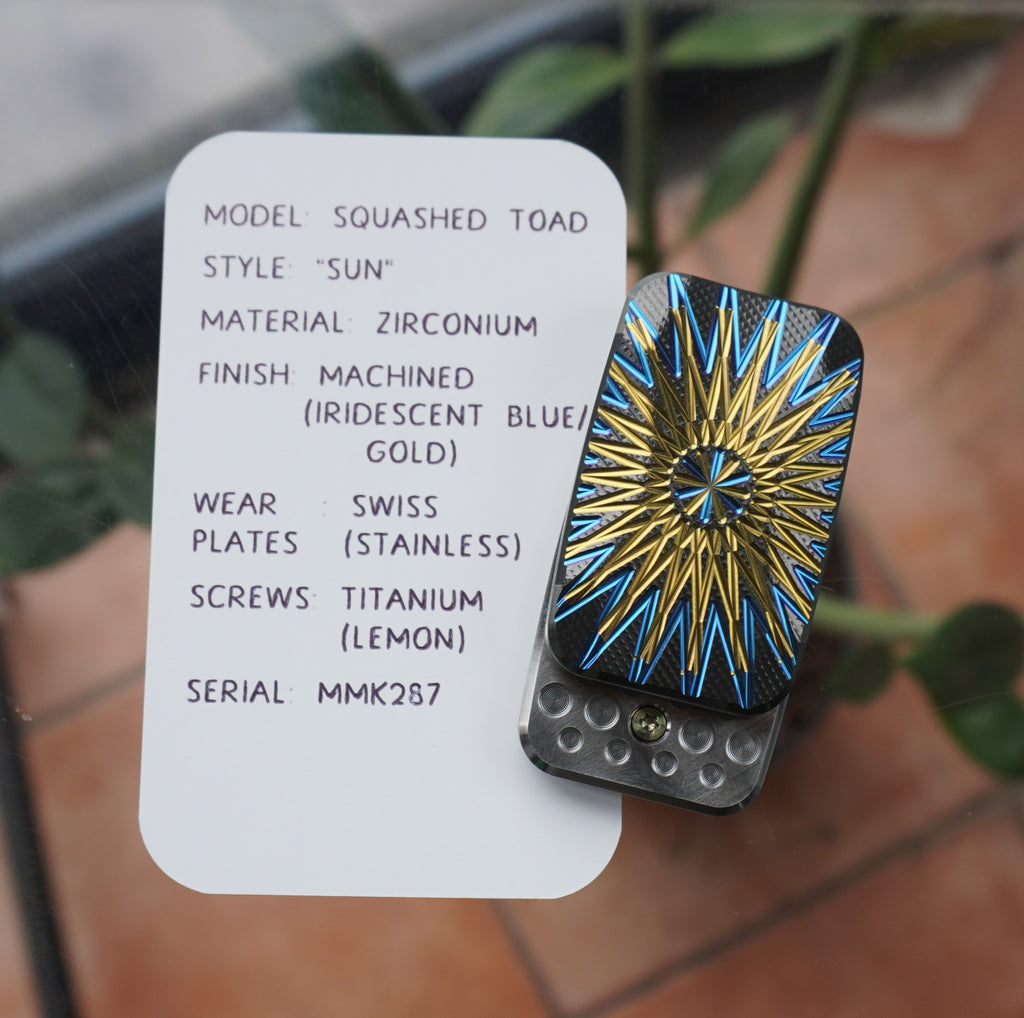 MODEL: SQUASHED TOAD
STYLE: "SUN"
MATERIAL: ZIRCONIUM
FINISH: MACHINED
(IRIDESCENT BLUE/
GOLD)
WEAR : SWISS
PLATES (STAINLESS)
SCREWS: TITANIUM
(LEMON)
SERIAL: MMK287